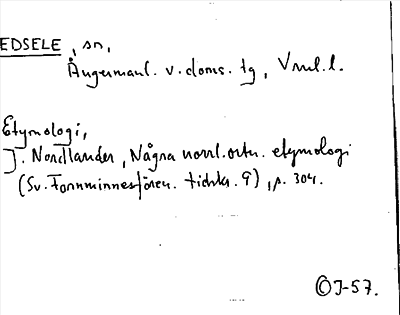 EDSELE, sn,
Ångermanl. v. doms. tg, Vnrl. l.
Etymologi,
J. Nordlander, Några norrl. ortn. etymologi
(Sv. Fornminnesfören. tidskr. 9), p. 304.
©J-57.